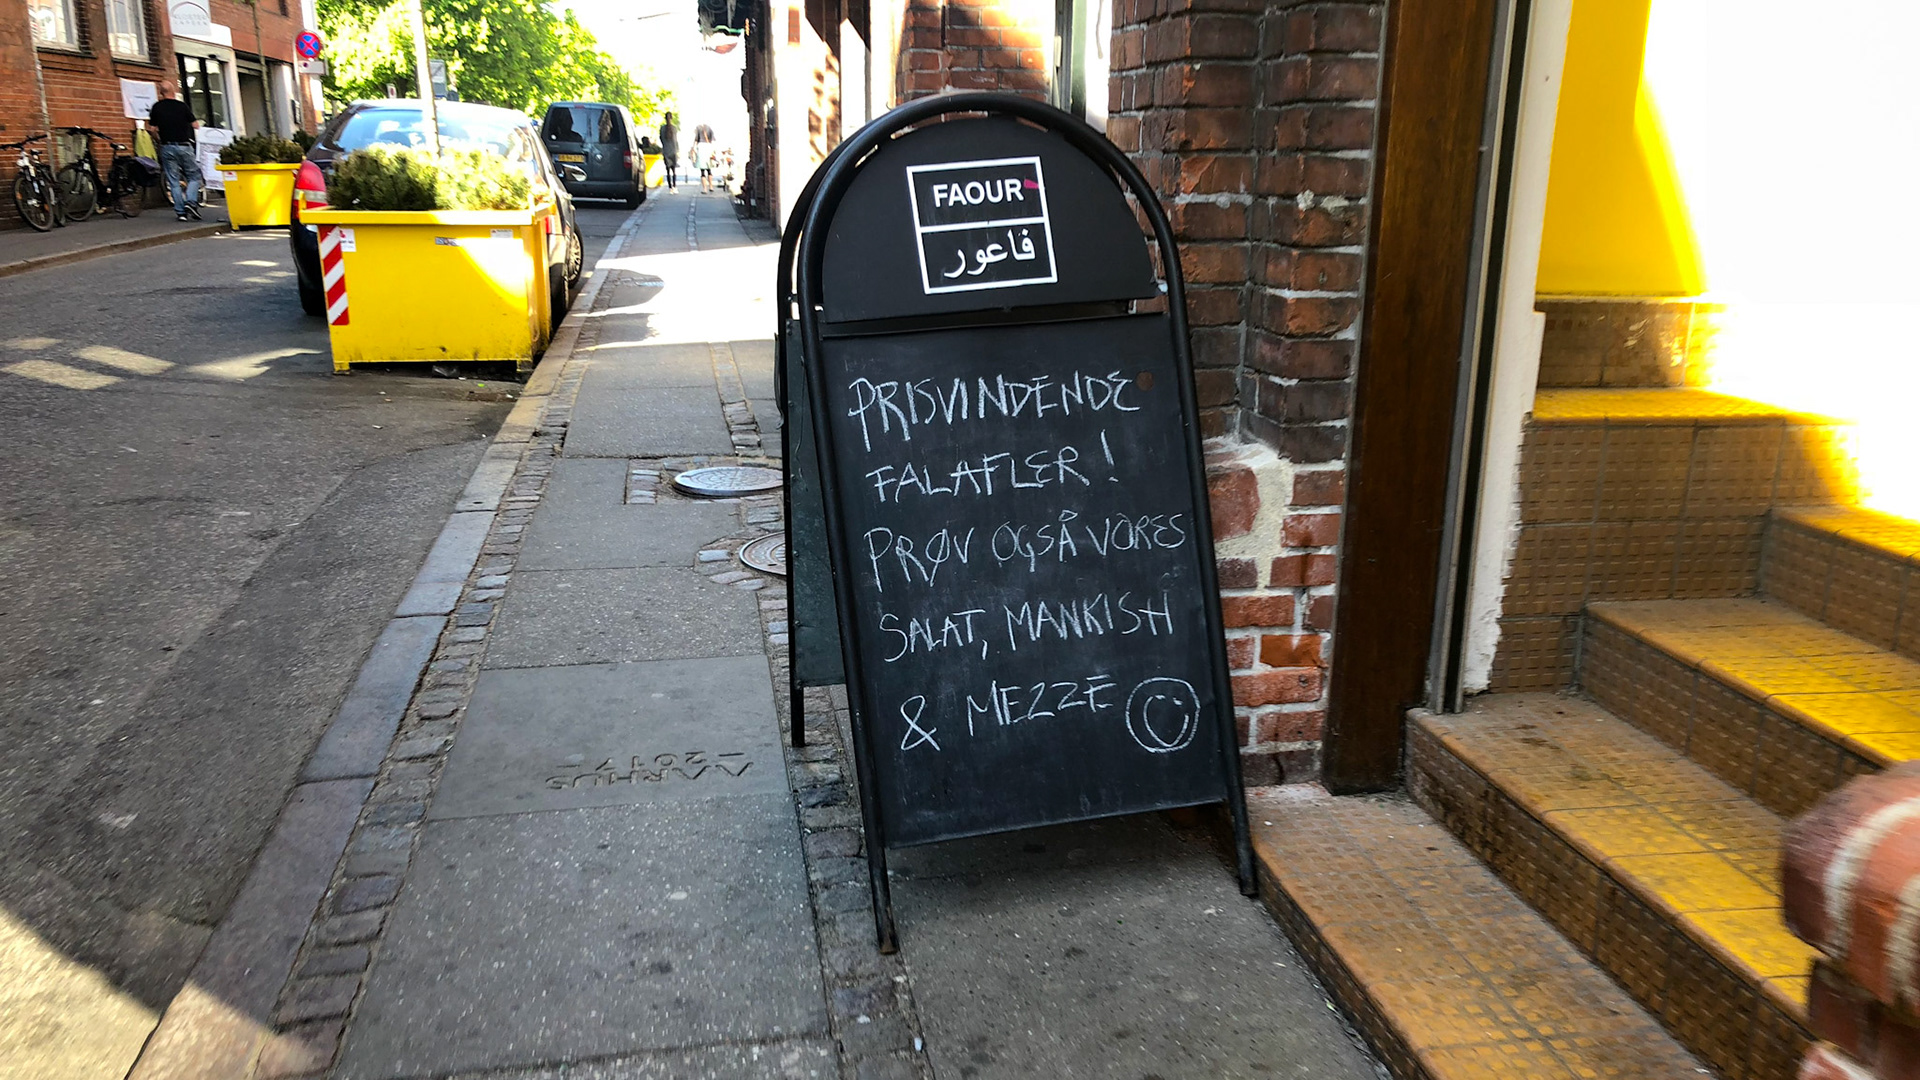 FAOUR
فاعور
PRISVINDENDE
FALAFLER!
PRØV OGSÅ VORES
SALAT, MANKISH
& MEZZE
AARHUS